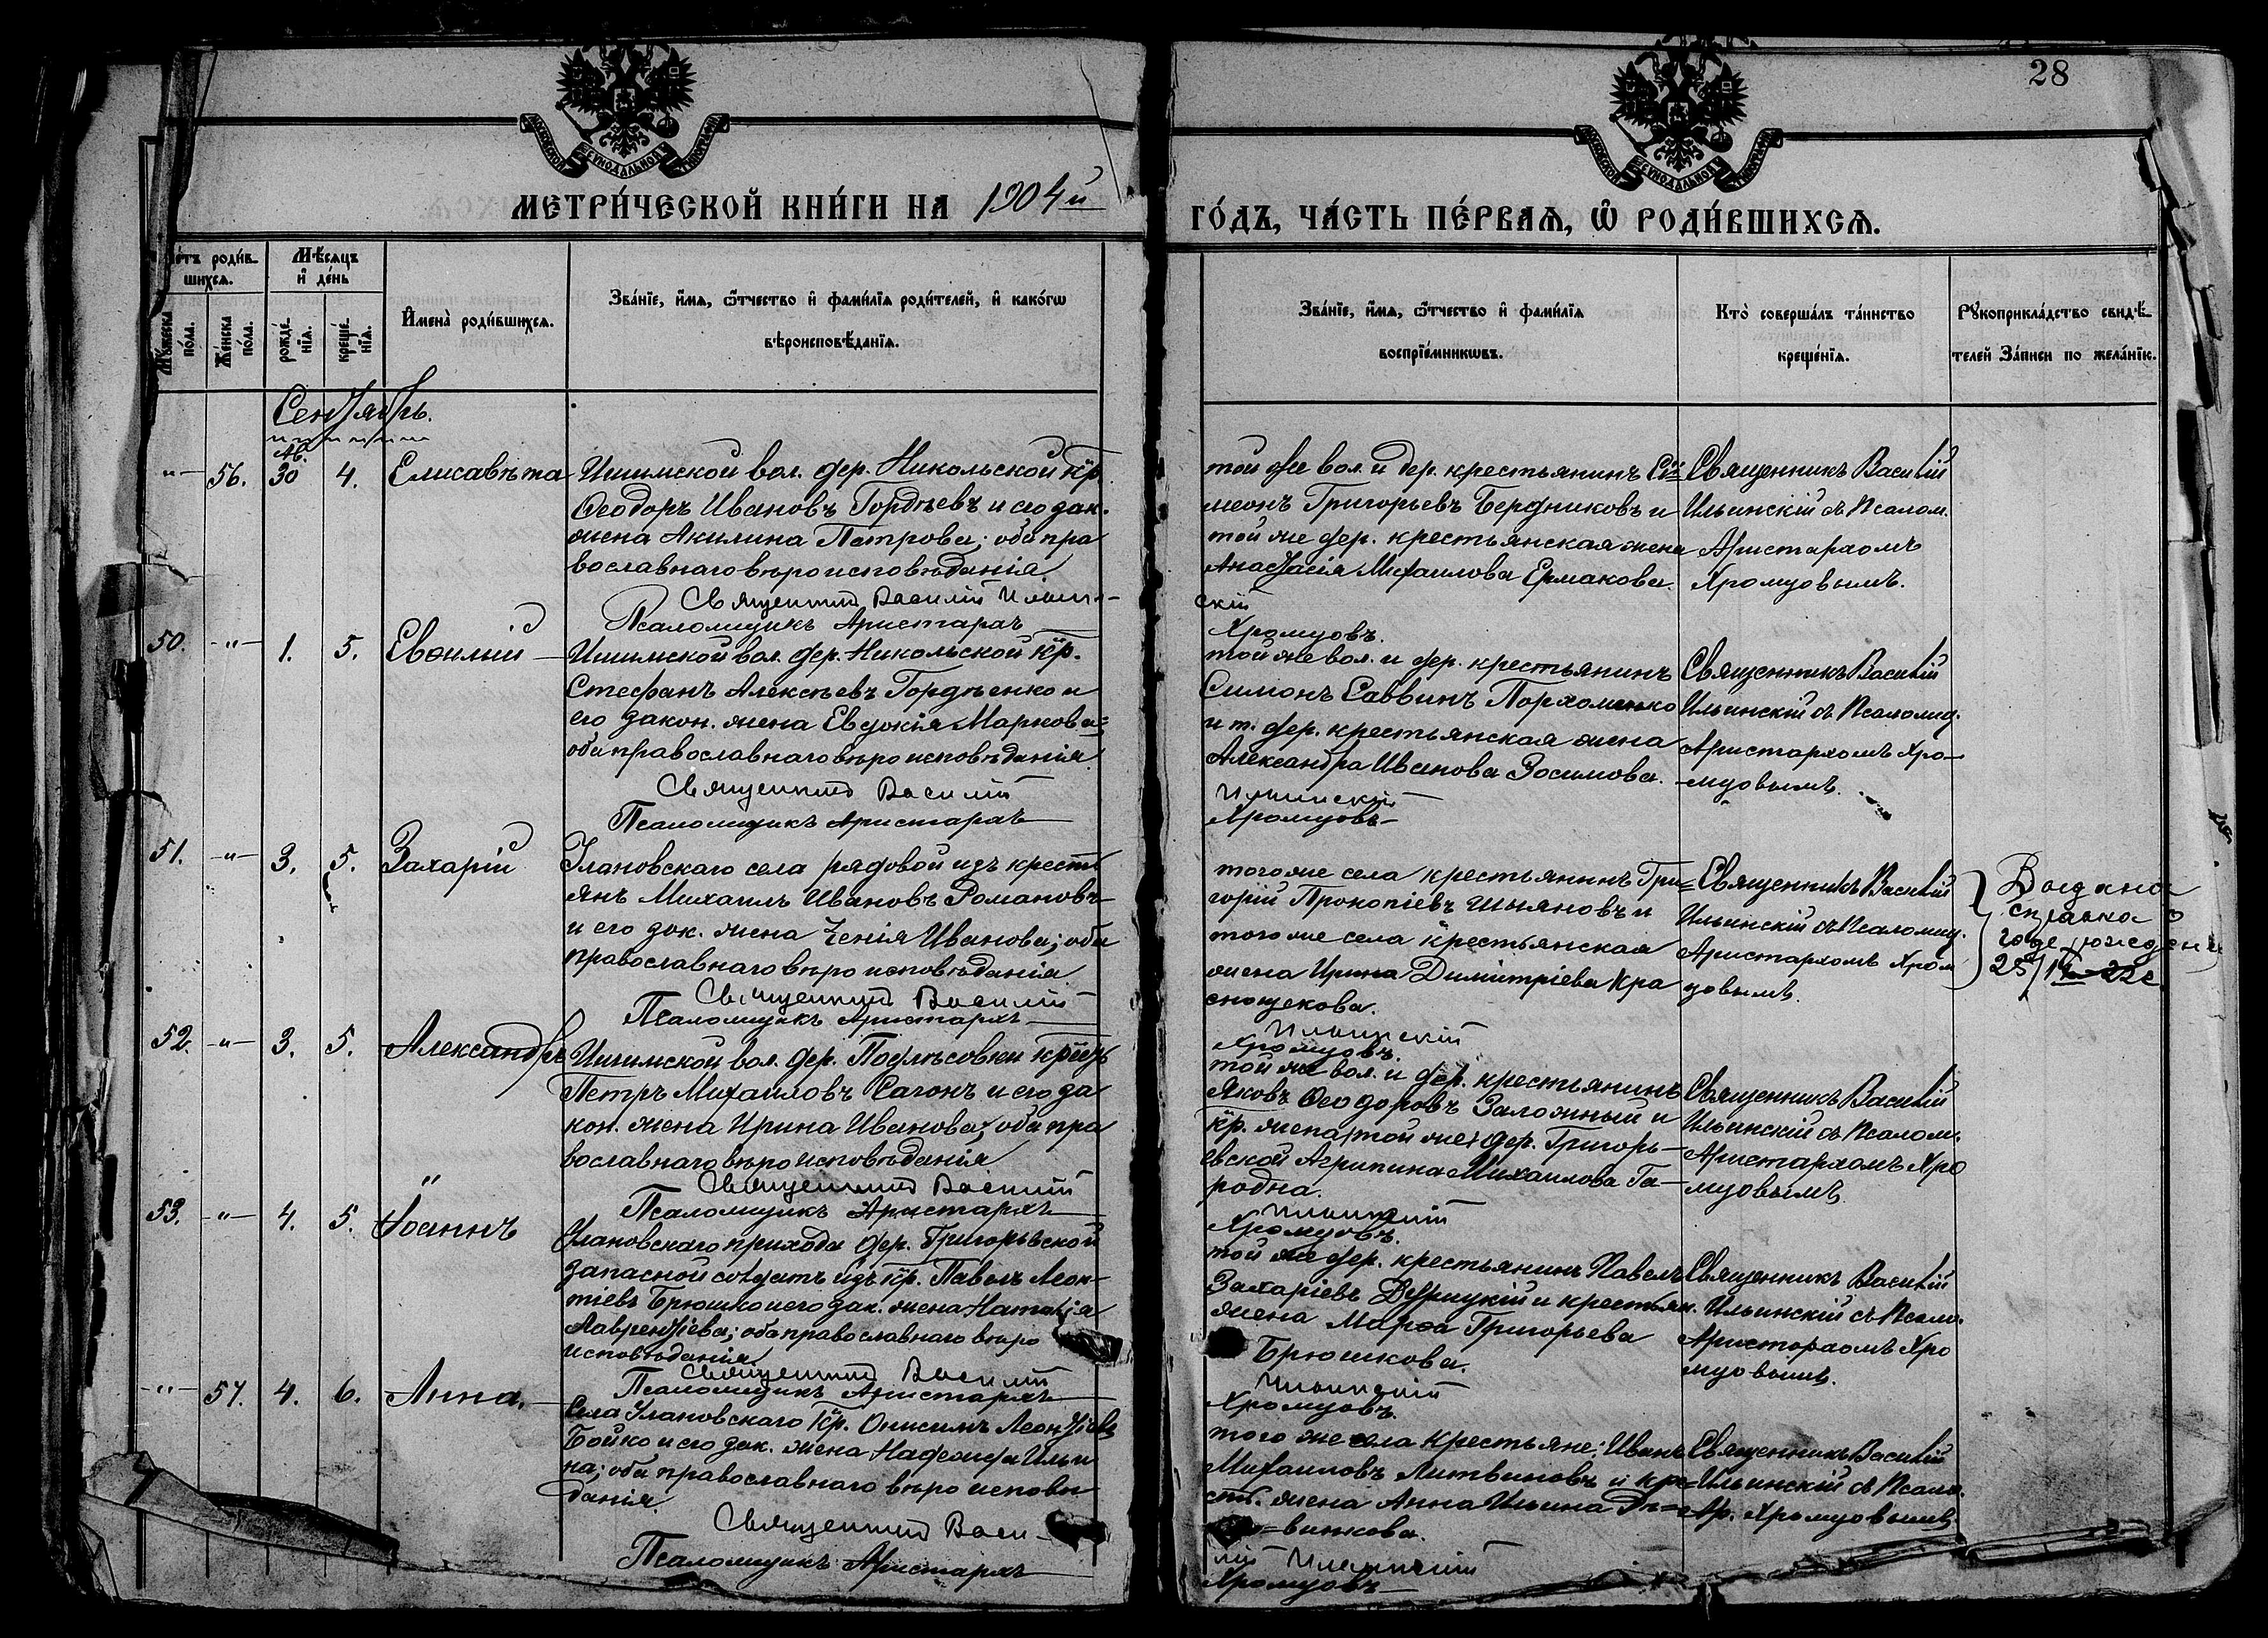 28
МОСКОВСКОЙ СѴНОДАЛЬНОЙ ТИПОГРАФІИ
МОСКОВСКОЙ СѴНОДАЛЬНОЙ ТИПОГРАФІИ
МЕТРИ́ЧЕСКОЙ КНИ́ГИ НА 1904й
ГО́ДЪ, ЧА́СТЬ ПЕ́РВАѦ, Ѡ РОДИ́ВШИХСѦ.
етъ роди́в-
шихсѧ.
Мѣ́сѧцъ
и҆ де́нь
Мꙋ́жеска по́ла.
Же́нска по́ла.
рожде́нїѧ.
креще́нїѧ.
И҆мена̀ роди́вшихсѧ.
Зва́нїе, и҆́мѧ, ѻ҆́тчество и҆ фами́лїѧ роди́телей, и҆ како́гѡ
вѣроисповѣ́данїѧ.
Зва́нїе, и҆́мѧ, ѻ҆́тчество и҆ фами́лїѧ
воспрїе́мникѡвъ.
Кто̀ соверша́лъ та́инство
креще́нїѧ.
Рꙋкоприкла́дство свидѣ́-
телей за́писи по жела́нїю.
Сентябрь.
Ав.
"— 56. 30 4. Елисавѣта
Ишимской вол. дер. Никольской кр.
Ѳеодоръ Ивановъ Гордѣевъ и его зак.
жена Акилина Петрова; оба пра
вославнаго вѣроисповѣданія.
Священникъ Василій Ильин-
Псаломщикъ Аристархъ
той же вол. и дер. крестьянинъ Си=
меонъ Григорьевъ Бердниковъ и
той же дер. крестьянская жена
Анастасія Михаилова Ермакова.
скій
Хромцовъ.
Священникъ Василій
Ильинскій съ Псалом.
Аристархомъ
Хромцовымъ.
50. -"- 1. 5. Евѳимій
Ишимской вол. дер. Никольской кр.
Стефанъ Алексѣевъ Гордѣенко и
его закон. жена Евдокія Маркова;
оба православнаго вѣроисповѣданія.
Священникъ Василій
Псаломщикъ Аристархъ
той же вол. и дер. крестьянинъ
Симонъ Саввинъ Порхоменко
и т. дер. крестьянская жена
Александра Иванова Зосимова.
Ильинскій
Хромцовъ
Священникъ Василій
Ильинскій съ Псаломщ.
Аристархомъ Хро-
-мцовымъ.
51. -"- 3. 5. Захарій
Улановскаго села рядовой изъ кресть
янъ Михаилъ Ивановъ Романовъ
и его зак. жена Ѯенія Иванова; оба
православнаго вѣроисповѣданія.
Священникъ Василій
Псаломщикъ Аристархъ
того же села крестьянинъ Гри=
горій Прокопіевъ и
того же села крестьянская
жена Ирина Димитріева Кра
снощекова.
Ильинскій
Хромцовъ.
Священникъ Василій
Ильинскій съ Псаломщ.
Аристархомъ Хром
цовымъ.
Выдана
справка о
годе рождения
52. -"- 3. 5. Александръ
Ишимской вол. дер. Подлѣсовки кр. изъ
Петръ Михаиловъ Сагонъ и его за
кон. жена Ирина Иванова; оба пра
вославнаго вѣроисповѣданія
Священникъ Василій
Псаломщикъ Аристархъ
той же вол. и дер. крестьянинъ
Яковъ Ѳеодоровъ Заложный и
кр. жена (той же) дер. Григорь-
евской Агрипина Михаилова Га-
родна.
Ильинскій
Хромцовъ.
Священникъ Василій
Ильинскій съ Псалом.
Аристархомъ Хро
мцовымъ.
53. -"- 4. 5. Іоаннъ
Улановскаго прихода дер. Григорьевской
запасной солдатъ изъ кр. Павелъ Леон-
тіевъ Брюшко и его зак. жена Наталія
Лаврентіева; оба православнаго вѣро
исповѣданія.
Священникъ Василій
Псаломщикъ Аристархъ
той же дер. крестьянинъ Павелъ
Захаріевъ и крестьян.
жена Марѳа Григорьева
Брюшкова.
Ильинскій
Хромцовъ.
Священникъ Василій
Ильинскій съ Псалом.
Аристархомъ Хро
мцовымъ.
-"- 57. 4. 6. Анна.
Села Улановскаго кр. Онисимъ Леонтіевъ
Бойко и его зак. жена Надежда Ильи
на; оба православнаго вѣроисповѣ
данія.
Священникъ Васи-
Псаломщикъ Аристархъ
того же села крестьяне: Иванъ
Михаиловъ Литвиновъ и кре=
ст. жена Анна Ильина
винкова.
лій Ильинскій
Хромцовъ
Священникъ Василій
Ильинскій съ Псалом.
Ар. Хромцовымъ.